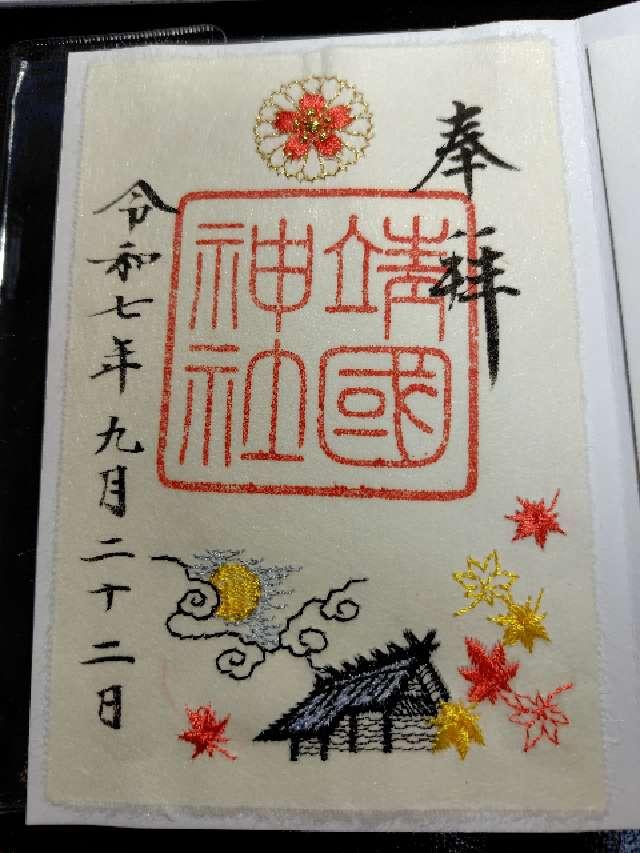 奉拝
靖國
神社
令和七年九月二十二日